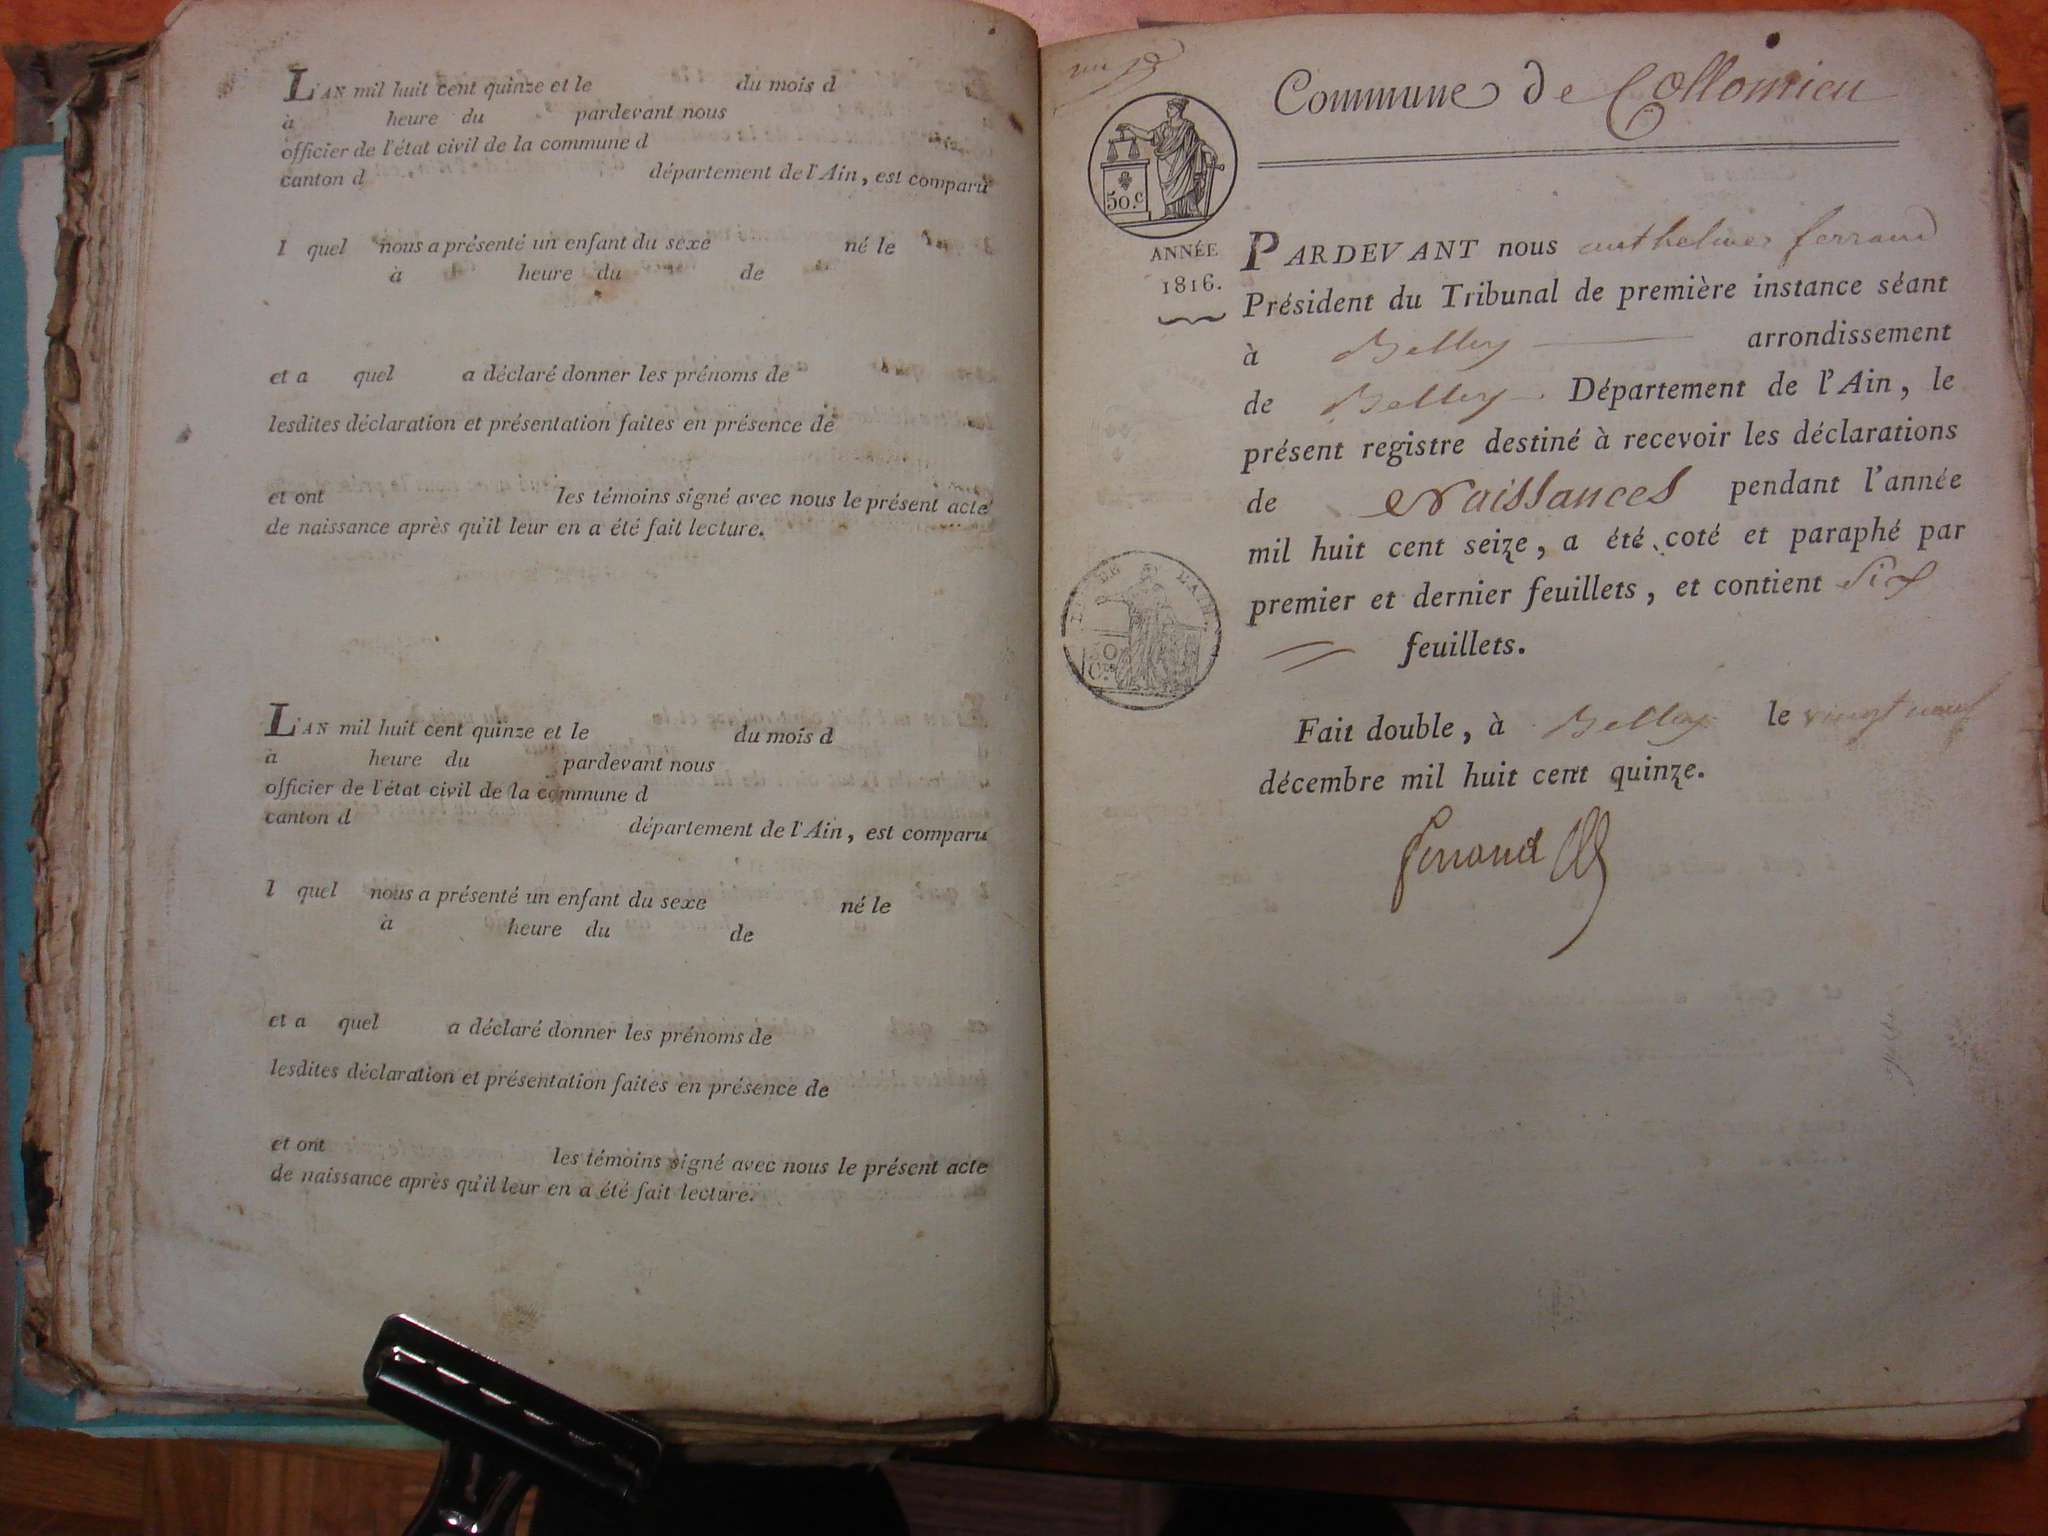 L'AN mil huit cent quinze et le du mois d
à heure du pardevant nous
officier de l'état civil de la commune d
canton d département de l'Ain, est comparu
l quel nous a présenté un enfant du sexe né le
à heure du de
et a quel a déclaré donner les prénoms de
lesdites déclaration et présentation faites en présence de
et ont les témoins signé avec nous le présent acte
de naissance après qu'il leur en a été fait lecture.
L'AN mil huit cent quinze et le du mois d
à heure du pardevant nous
officier de l'état civil de la commune d
canton d département de l'Ain, est comparu
l quel nous a présenté un enfant du sexe né le
à heure du de
et a quel a déclaré donner les prénoms de
lesdites déclaration et présentation faites en présence de
et ont les témoins signé avec nous le présent acte
de naissance après qu'il leur en a été fait lecture.
Commune de Collomieu
50.c
ANNÉE
1816.
PARDEVANT nous anthelme ferrand
Président du Tribunal de première instance séant
à Belley arrondissement
de Belley Département de l'Ain, le
présent registre destiné à recevoir les déclarations
de Naissances pendant l'année
mil huit cent seize, a été coté et paraphé par
premier et dernier feuillets, et contient Six
feuillets.
DE L'AIN
50
Fait double, à Belley le vingt neuf
décembre mil huit cent quinze.
ferrand